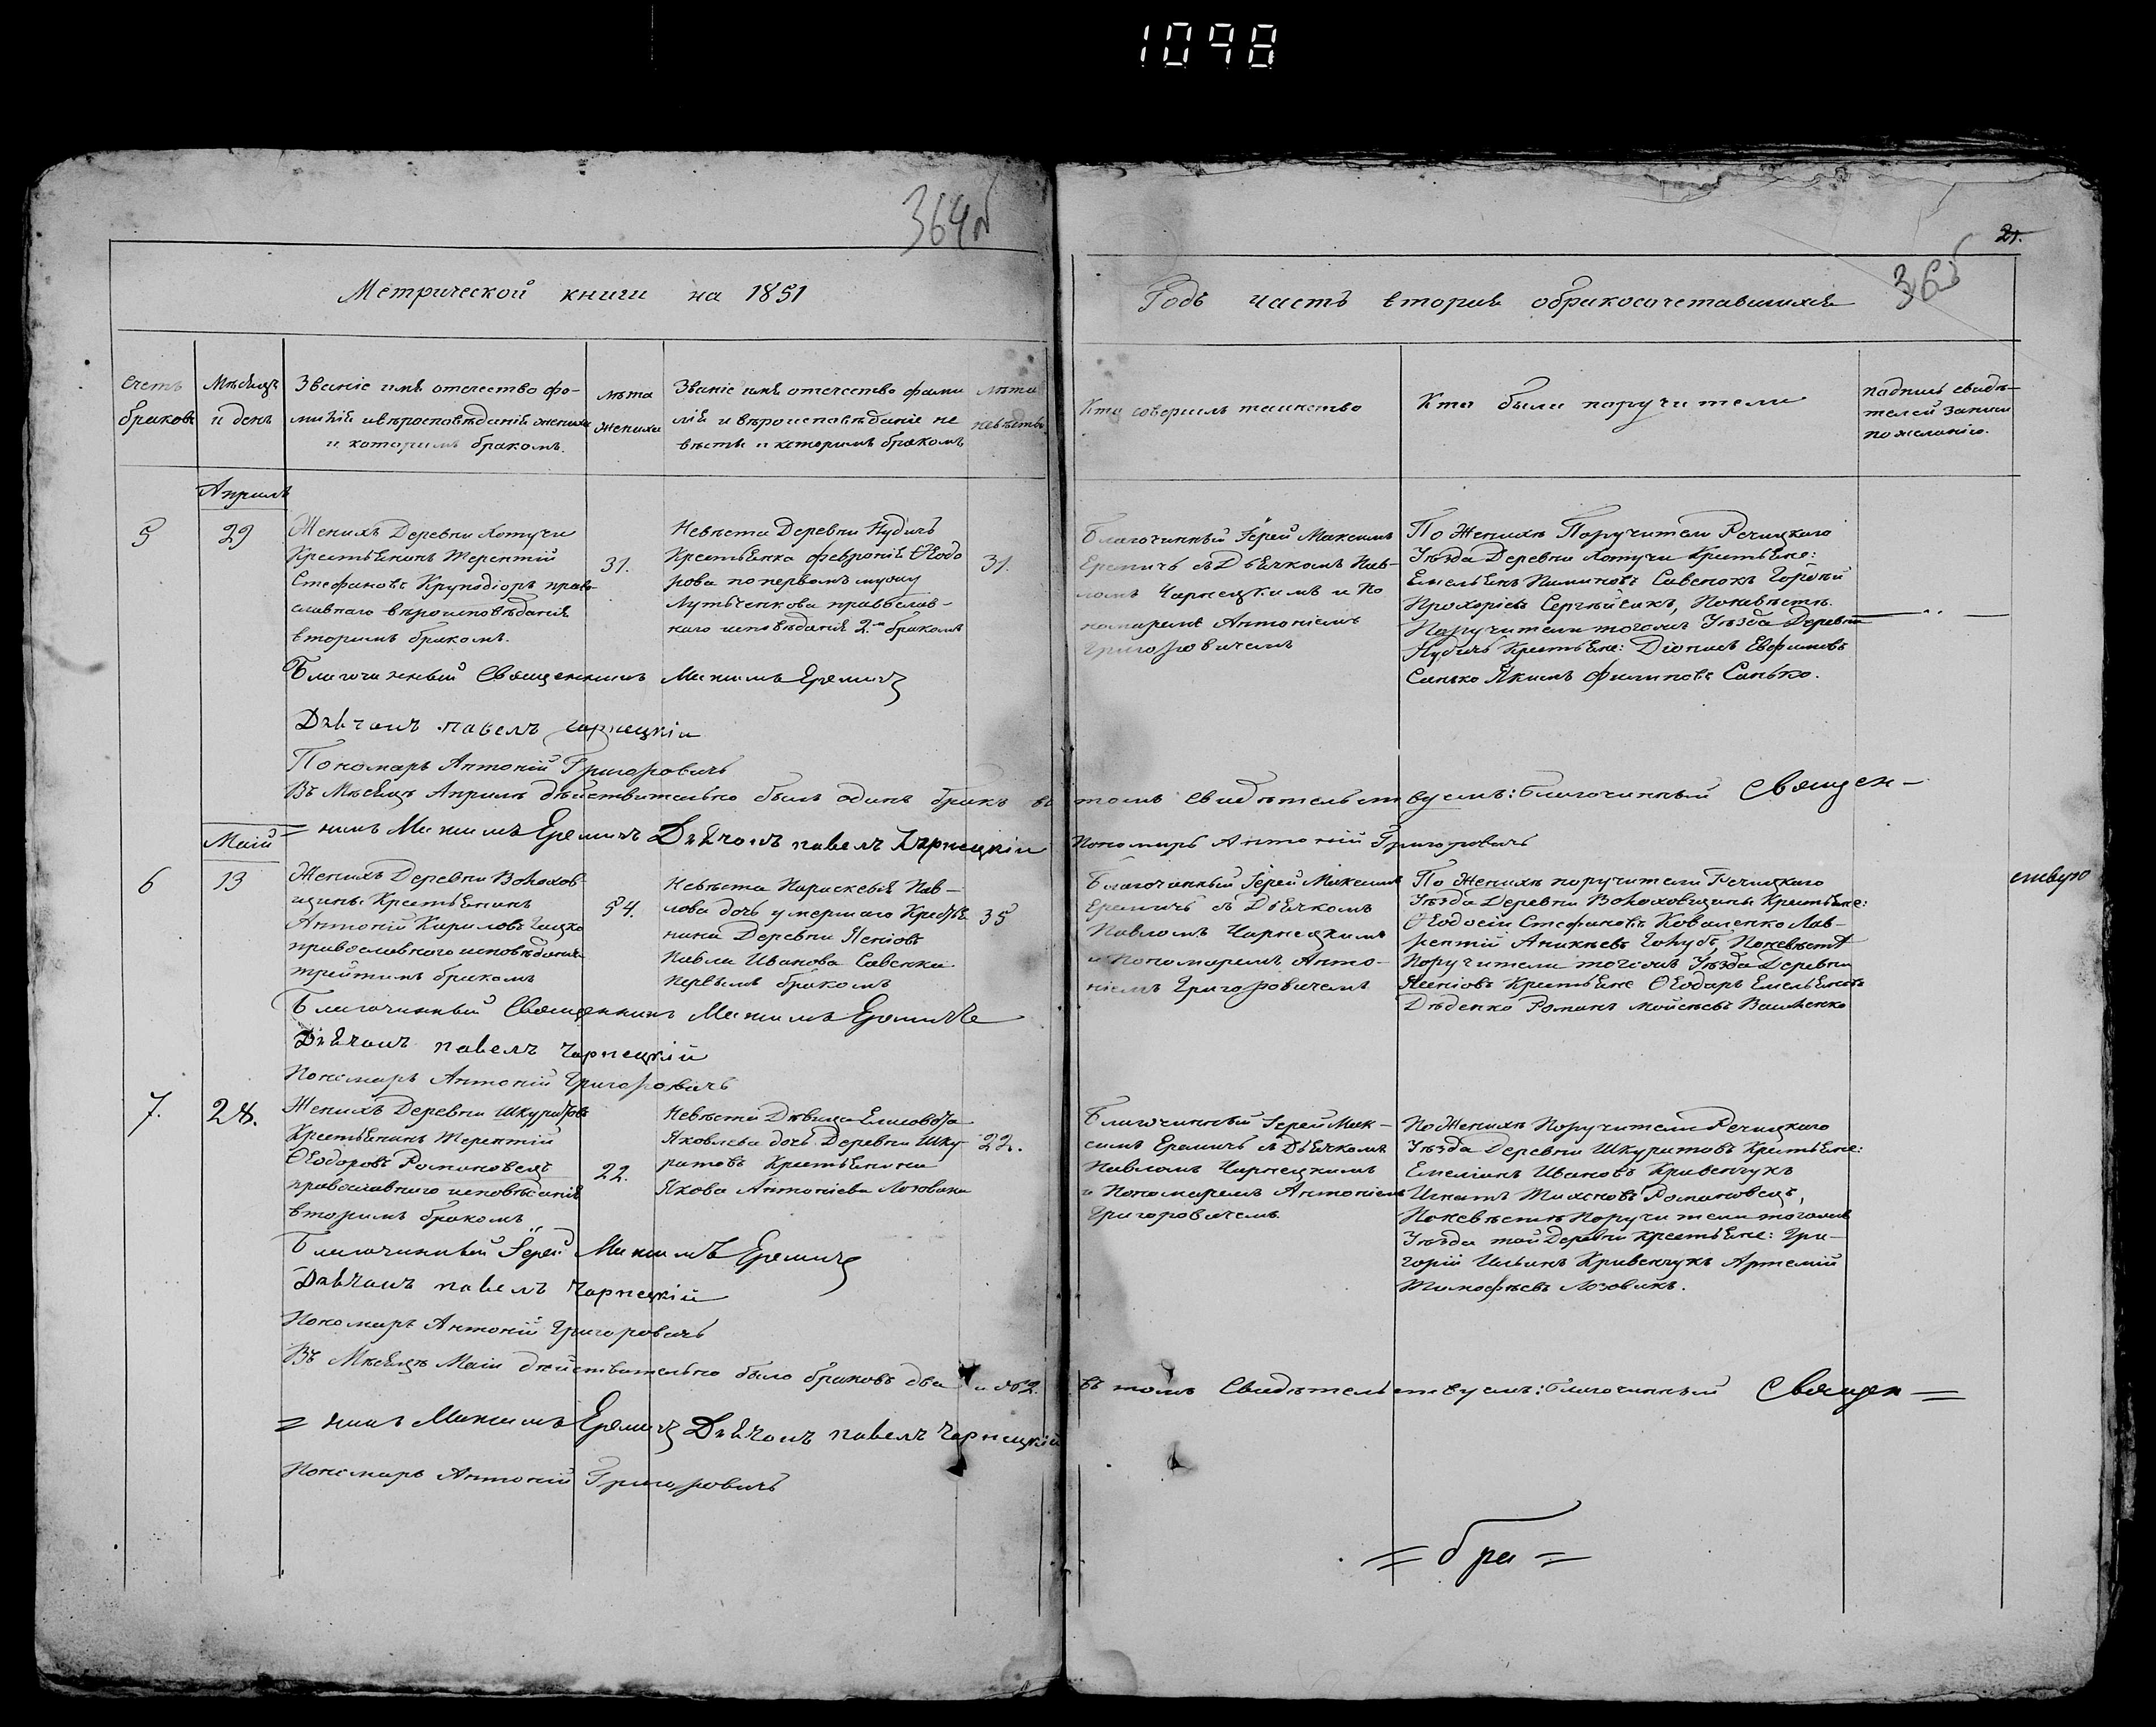 1098
364 об
21.
365
Метрической книги на 1851
Годъ часть вторая обракосочетавшихся
Счетъ
браковъ
Мѣсяцъ
и день
Званіе имя отечество фа-
милія ивѣроисповѣданіе жениха
и которымъ бракомъ.
лѣта
жениха
Званіе имя отечество фами
лія и вѣроисповѣданіе не
вѣсты и которымъ бракомъ
лѣта
невѣсты
Кто совершилъ таинство
Кто были поручители
подпись свидѣ-
телей записи
по желанію.
Апрель
5
29
Женихъ Деревни Хотучи
Крестьянинъ Терентій
Стефановъ Круподіоръ право
славнаго вѣроисповѣданія
вторимъ бракомъ.
31.
Невѣста Деревни Нудичъ
Крестьянка Февронія Ѳеодо
рова попервомъ мужу
Лутченкова православ-
наго исповѣданія 2.м бракомъ
31.
Благочинный Іерей Максимъ
Еремичъ съ Дьячкомъ Пав-
ломъ Чарнецкимъ и По
номаремъ Антоніемъ
Григоровичемъ
По Женихѣ Поручители Речицкаго
Уѣзда Деревни Хотучи Крестьяне:
Емельянъ Пиминовъ Савенокъ Гордѣй
Прохоріевъ Сергѣйчикъ, Поневѣстѣ.
Поручители тогожъ Уѣзда Деревни
Нудичъ Крестьяне: Діонисъ Евфимовъ
Санько Якимъ Филиповъ Санько.
Благочинный Священникъ Максимъ Еремичъ
Дьячокъ павелъ Чарнецкій
Пономарь Антоній Григоровичъ
Въ Мѣсяцѣ Апрелѣ дѣйствительно былъ одинъ бракъ въ томъ свидѣтельствуемъ: благочинный Священ-
= никъ Максимъ Еремичъ Дьячокъ павелъ Чарнецкій Пономарь Антоній Григоровичъ
Маій
6
13
Женихъ Деревни Волохов
щины Крестьянинъ
Антоній Кириловъ
православнаго исповѣданія
третимъ бракомъ
54.
Невѣста Параскевія Пав-
лова дочь умершаго Крестья
нина Деревни Ясеновъ
Павла Иванова Савенка
первымъ бракомъ
35
Благочинный Іерей Максимъ
Еремичъ съ Дьячкомъ
Павломъ Чарнецкимъ
и Пономаремъ Анто-
ніемъ Григоровичемъ
По Женихѣ поручители Речицкаго
Уѣзда Деревни Волоховщины Крестьяне:
Ѳеодосій Стефановъ Коваленко Лав-
рентій Аникѣевъ Голубъ, Поневѣстѣ
Поручители тогожъ Уѣзда Деревни
Ясеновъ Крестьяне Ѳеодоръ Емельяновъ
Дѣденко Романъ Мойсѣевъ
Благочинный Священникъ Максимъ Еремичъ
Дьячокъ павелъ Чарнецкій
Пономарь Антоній Григоровичъ
7.
28.
Женихъ Деревни Шкуратовъ
Крестьянинъ Терентій
Ѳеодоровъ Романовецъ
православнаго исповѣданія
вторимъ бракомъ
22.
Невѣста Дѣвица Елисавета
Яковлева дочь Деревни Шку
ратовъ Крестьянина
Якова Антоніева Лозовика
22.
Благочинный Іерей Мак-
симъ Еремичъ съ Дьячкомъ
Павломъ Чарнецкимъ
и Пономаремъ Антоніемъ
Григоровичемъ.
По Женихѣ Поручители Речицкаго
Уѣзда Деревни Шкуратовъ Крестьяне:
Емеліанъ Ивановъ Кривенчукъ
Игнатъ Тихоновъ Романовецъ,
Поневѣстѣ Поручители тогожъ
Уѣзда той Деревни Крестьяне: Гри-
горій Ильинъ Кривенчукъ Артемій
Тимофѣевъ Лозовикъ.
Благочинный Іерей Максимъ Еремичъ
Дьячокъ павелъ Чарнецкій
Пономарь Антоній Григоровичъ
Въ Мѣсяцѣ Маіи дѣйствительно было браковъ два 2. въ томъ Свидѣтельствуемъ: благочинный Священ=
= никъ Максимъ Еремичъ Дьячокъ павелъ Чарнецкій
Пономарь Антоній Григоровичъ
= бра =